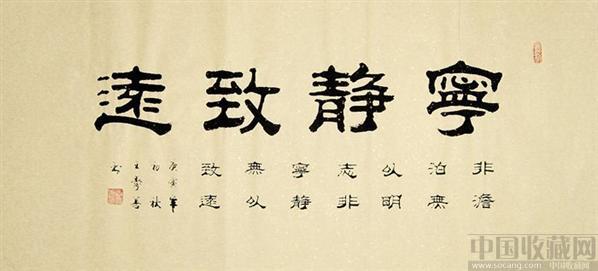 寧靜致遠
非澹
泊無
以明
志非
寧靜
無以
致遠
庚寅年
初秋
王壽善
書
中国收藏网
www.socang.com